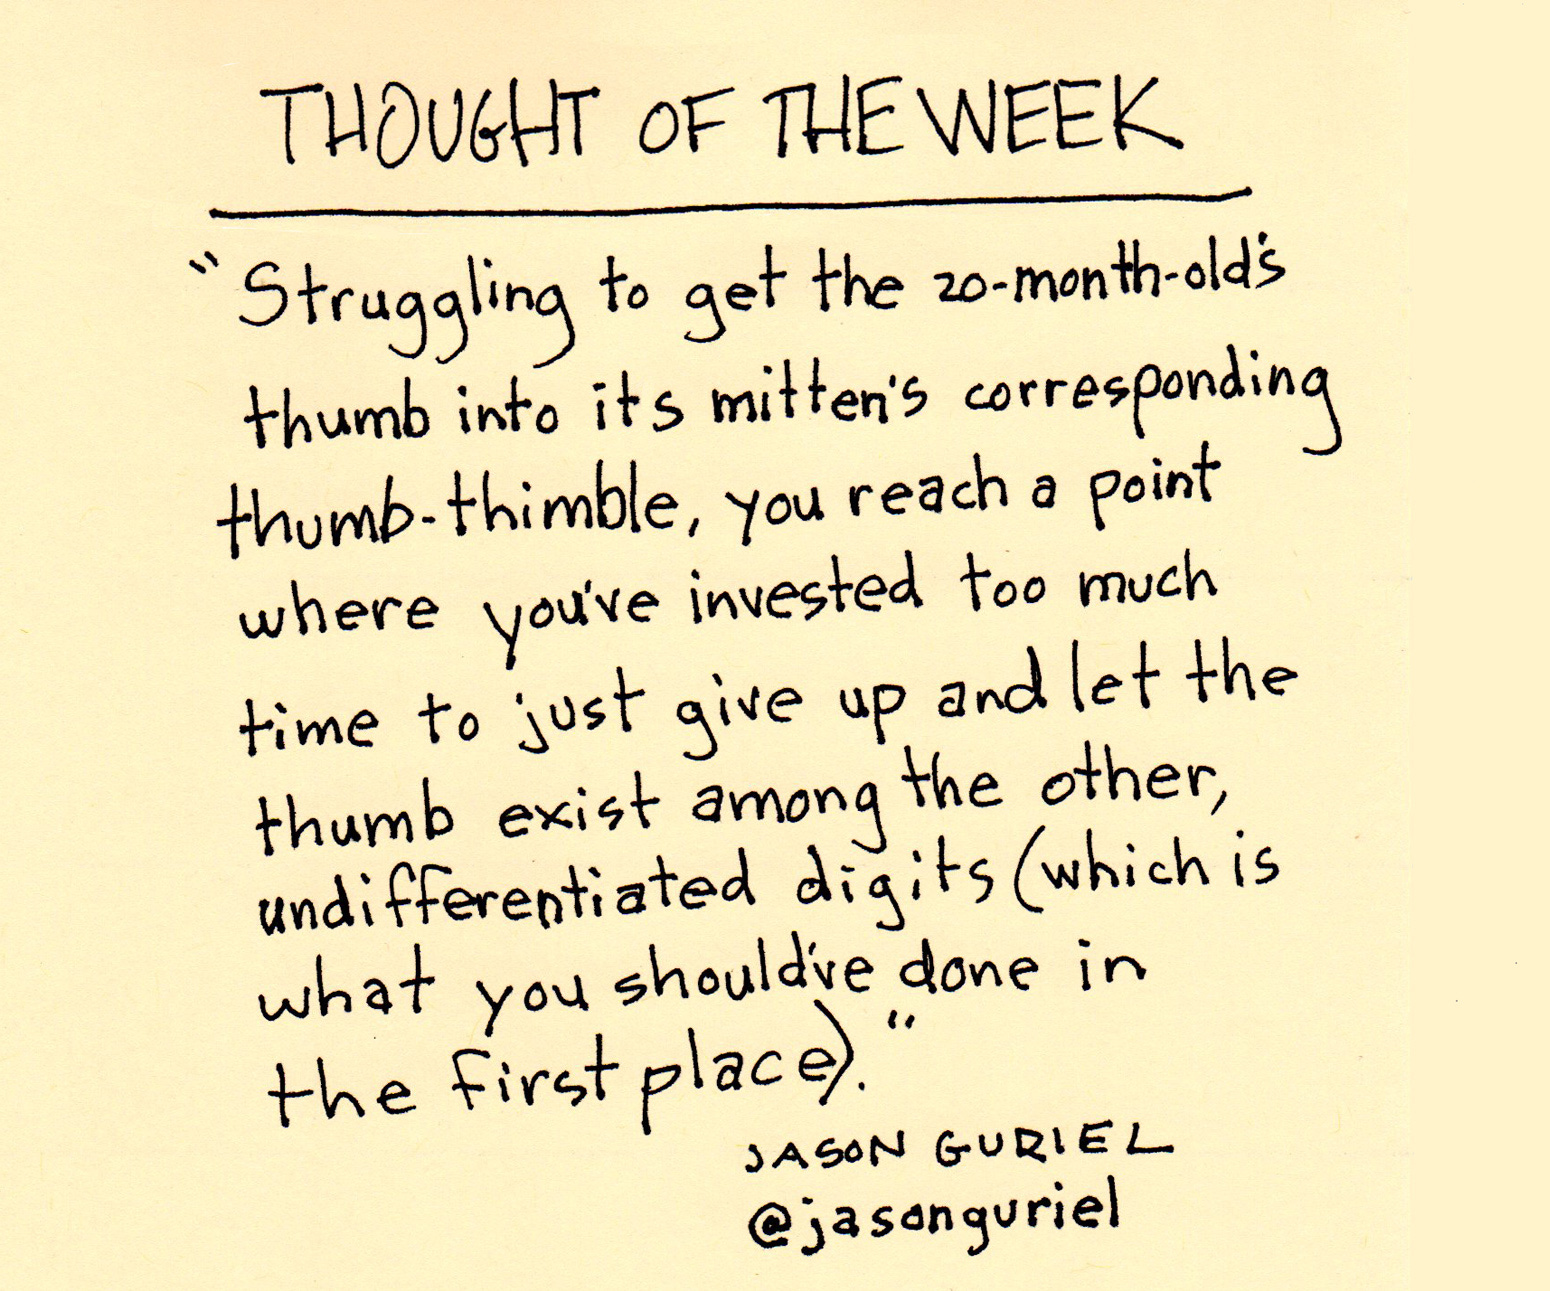 THOUGHT OF THE WEEK
"Struggling to get the 20-month-old's
thumb into its mitten's corresponding
thumb-thimble, you reach a point
where you've invested too much
time to just give up and let the
thumb exist among the other,
undifferentiated digits (which is
what you should've done in
the first place)."
JASON GURIEL
@jasonguriel